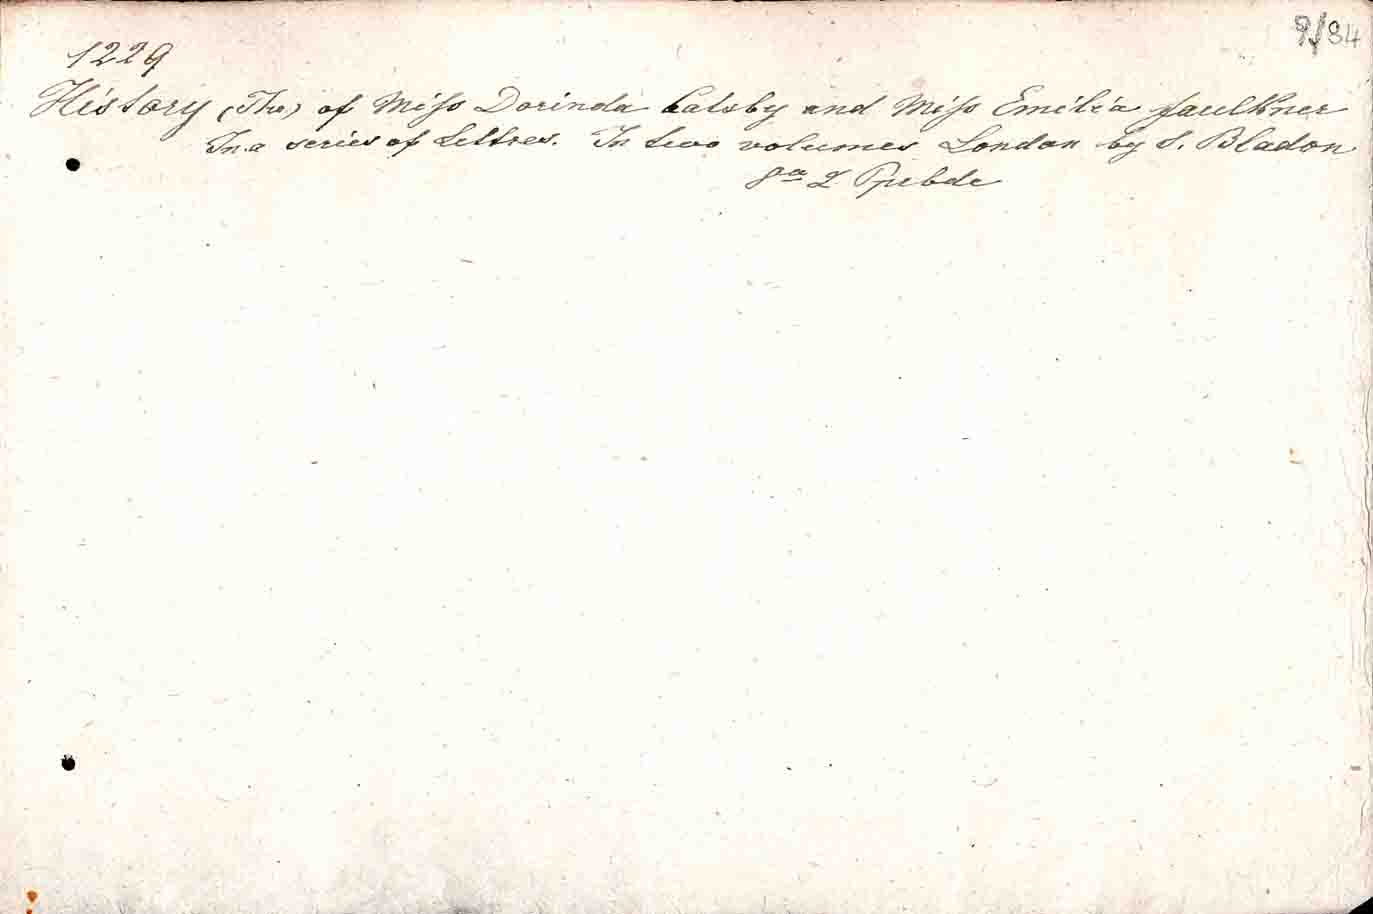 9/84
1229
History (The) of Miss Dorinda Catsby and Miss Emilia Faulkner
In a series of Lettres. In two volumes London by S. Bladon
8º 2